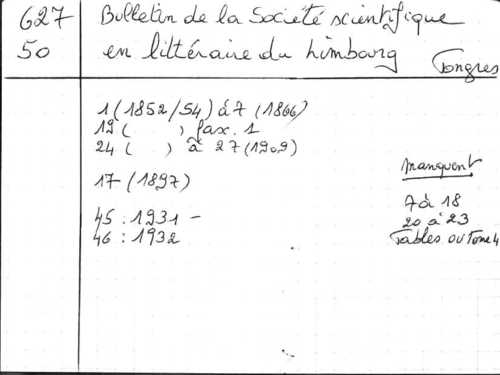 627 Bulletin de la Société scientifique
50 en littéraire du Limbourg Tongres
1 (1852/54) à 7 (1866)
19 ( ) fax. 1
24 ( ) à 27 (1909)
17 (1897)
45 : 1931 -
46 : 1932
manquent
7 à 18
20 à 23
Tables ou Tome 4